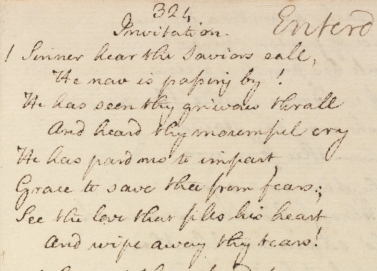 324
Invitation. Enterd
! Sinner hear the Saviors call,
He now is passing by!
He has seen thy grievous thrall
And heard thy mournful cry
He has pardons to impart
Grace to save thee from fears;
See the love that fills his heart
And wipe away thy tears!